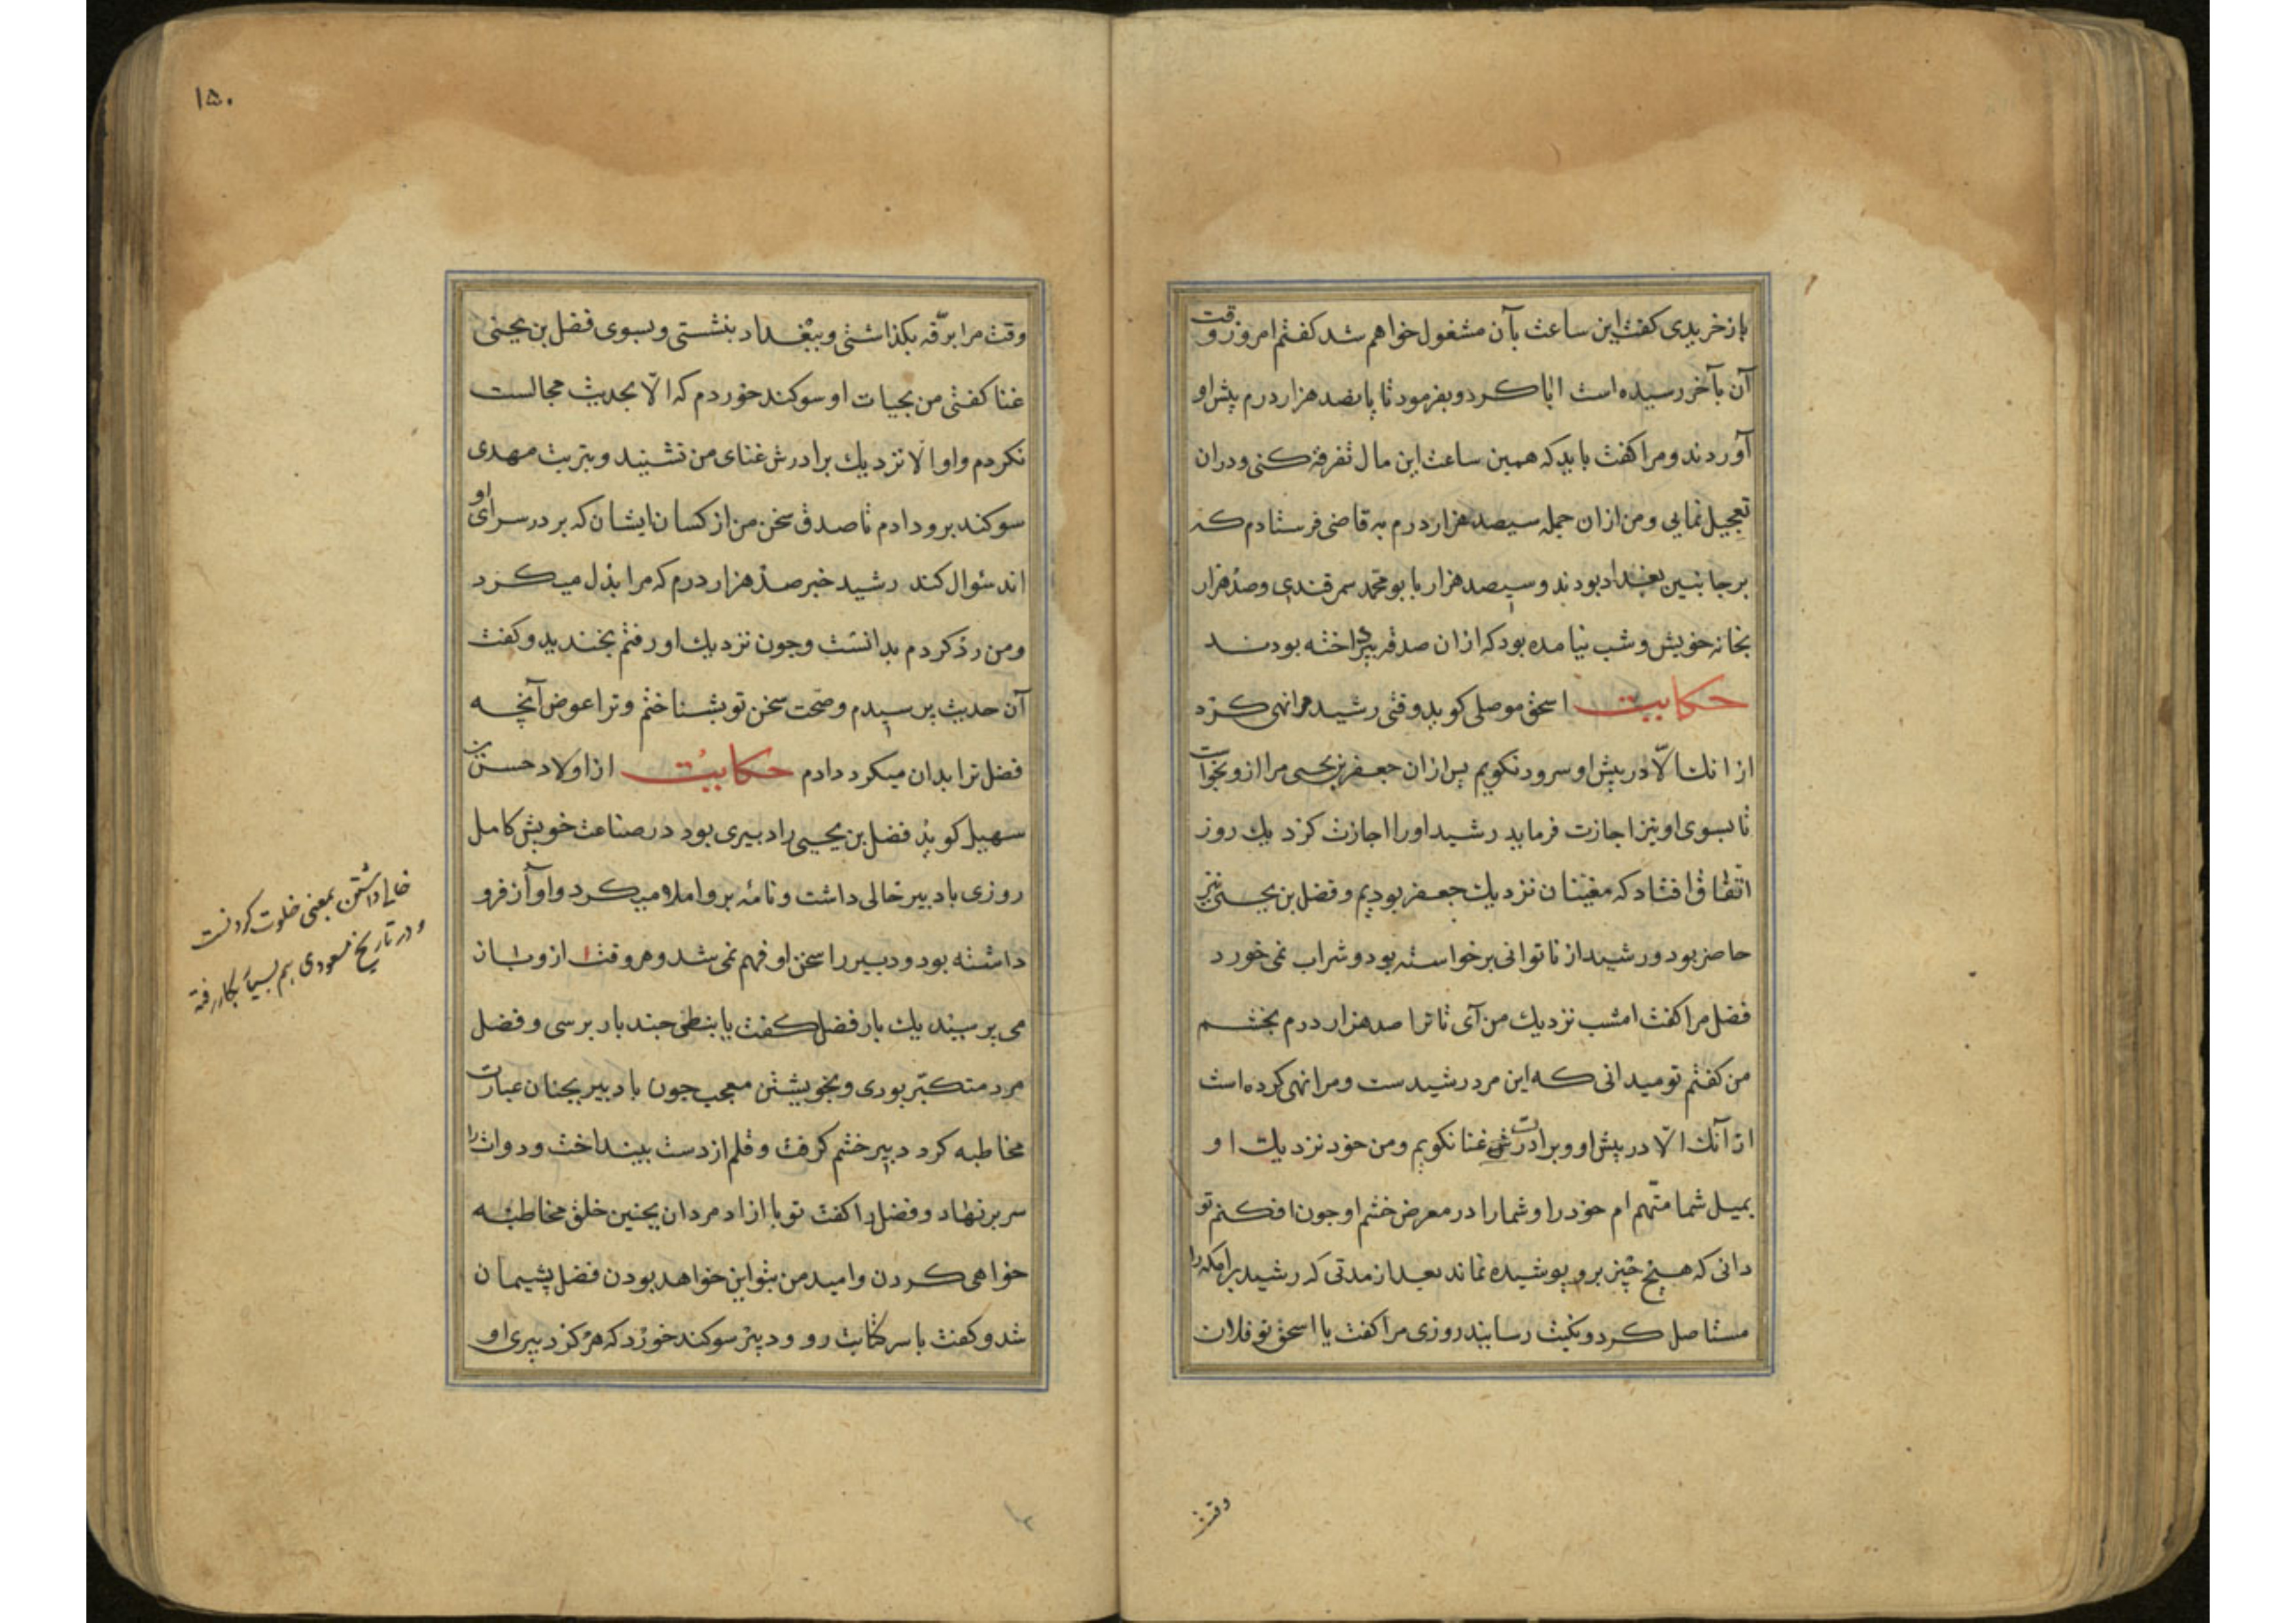 باز خریدی کفت این ساعت بآن مشغول خواهم شد کفتم امروز وقت
آن بآخر رسیده است ابا کرد و بفرمود تا پانصد هزار درم پیش او
آوردند و مرا کفت باید که همین ساعت این مال تفرقه کنی و در ان
تعجیل نمایی و من از ان جمله سیصد هزار درم به قاضی فرستادم که
بر جانبین بغداد بودند و سیصد هزار با بو محمد سمرقندی و صد هزار
بخانه خویش و شب نیامده بود که از ان صدقه پرداخته بودند
حکایت اسحق موصلی کوید وقتی رشید مرا نهی کرد
از انک الّا در پیش او سرود نکویم پس از ان جعفر بن یحیی مرا ازو بخواست
تا بسوی او نیز اجازت فرماید رشید او را اجازت کرد یک روز
اتفاق افتاد که مغنیان نزدیک جعفر بودیم و فضل بن یحیی نیز
حاضر بود و رشید از ناتوانی برخواسته بود و شراب نمی خورد
فضل مرا کفت امشب نزدیک من آی تا ترا صد هزار درم بخشم
من کفتم تو میدانی که این مرد رشیدست و مرا نهی کرده است
از آنک الّا در پیش او و برادرت غنا نکویم و من خود نزدیک او
بمیل شما متّهم ام خود را و شما را در معرض خشم او جون افکنم تو
دانی که هیچ چیز برو پوشیده نماند بعد از مدتی که رشید برامکه را
مستاصل کرد و نکبت رسانید روزی مرا کفت یا اسحق تو فلان
وقت
۱۵۰
وقت مرا برقّه بکذاشتی و ببغداد بنشستی و بسوی فضل بن یحیی
غنا کفتی من بحیات او سوکند خوردم که الّا بحدیث مجالست
نکردم و او الا نزدیک برادرش غنای من نشنید و بتربت مهدی
سوکند برو دادم تا صدق سخن من از کسان ایشان که بر در سرای او
اند سؤال کند رشید خبر صد هزار درم که مرا بذل میکرد
و من رد کردم بدانست و جون نزدیک او رفتم بخندید و کفت
آن حدیث پرسیدم و صحّت سخن تو بشناختم و ترا عوض آنچه
فضل ترا بدان میکرد دادم حکایت از اولاد حسن بن
سهیل کوید فضل بن یحیی را دبیری بود در صناعت خویش کامل
روزی با دبیر خالی داشت و نامه برو املا میکرد و او آن فرو
داشته بود و دبیر را سخن او فهم نمی شد و هر وقت ازو باز
می پرسید یک بار فضل کفت یا نبطی جند بار پرسی و فضل
مرد متکبّر بودی و بخویشتن معجب جون با دبیر بجنان عبارت
مخاطبه کرد دبیر خشم کرفت و قلم از دست بینداخت و دوات را
سر بر نهاد و فضل را کفت تو با ازاد مردان بجنین خلق مخاطبه
خواهی کردن و امید من بتو این خواهد بودن فضل پشیمان
شد و کفت با سر کتابت رو و دبیر سوکند خورد که هرکز دبیری او
خالی داشتن بمعنی خلوت کردنست
و در تاریخ مسعودی هم بسیار بکار رفته